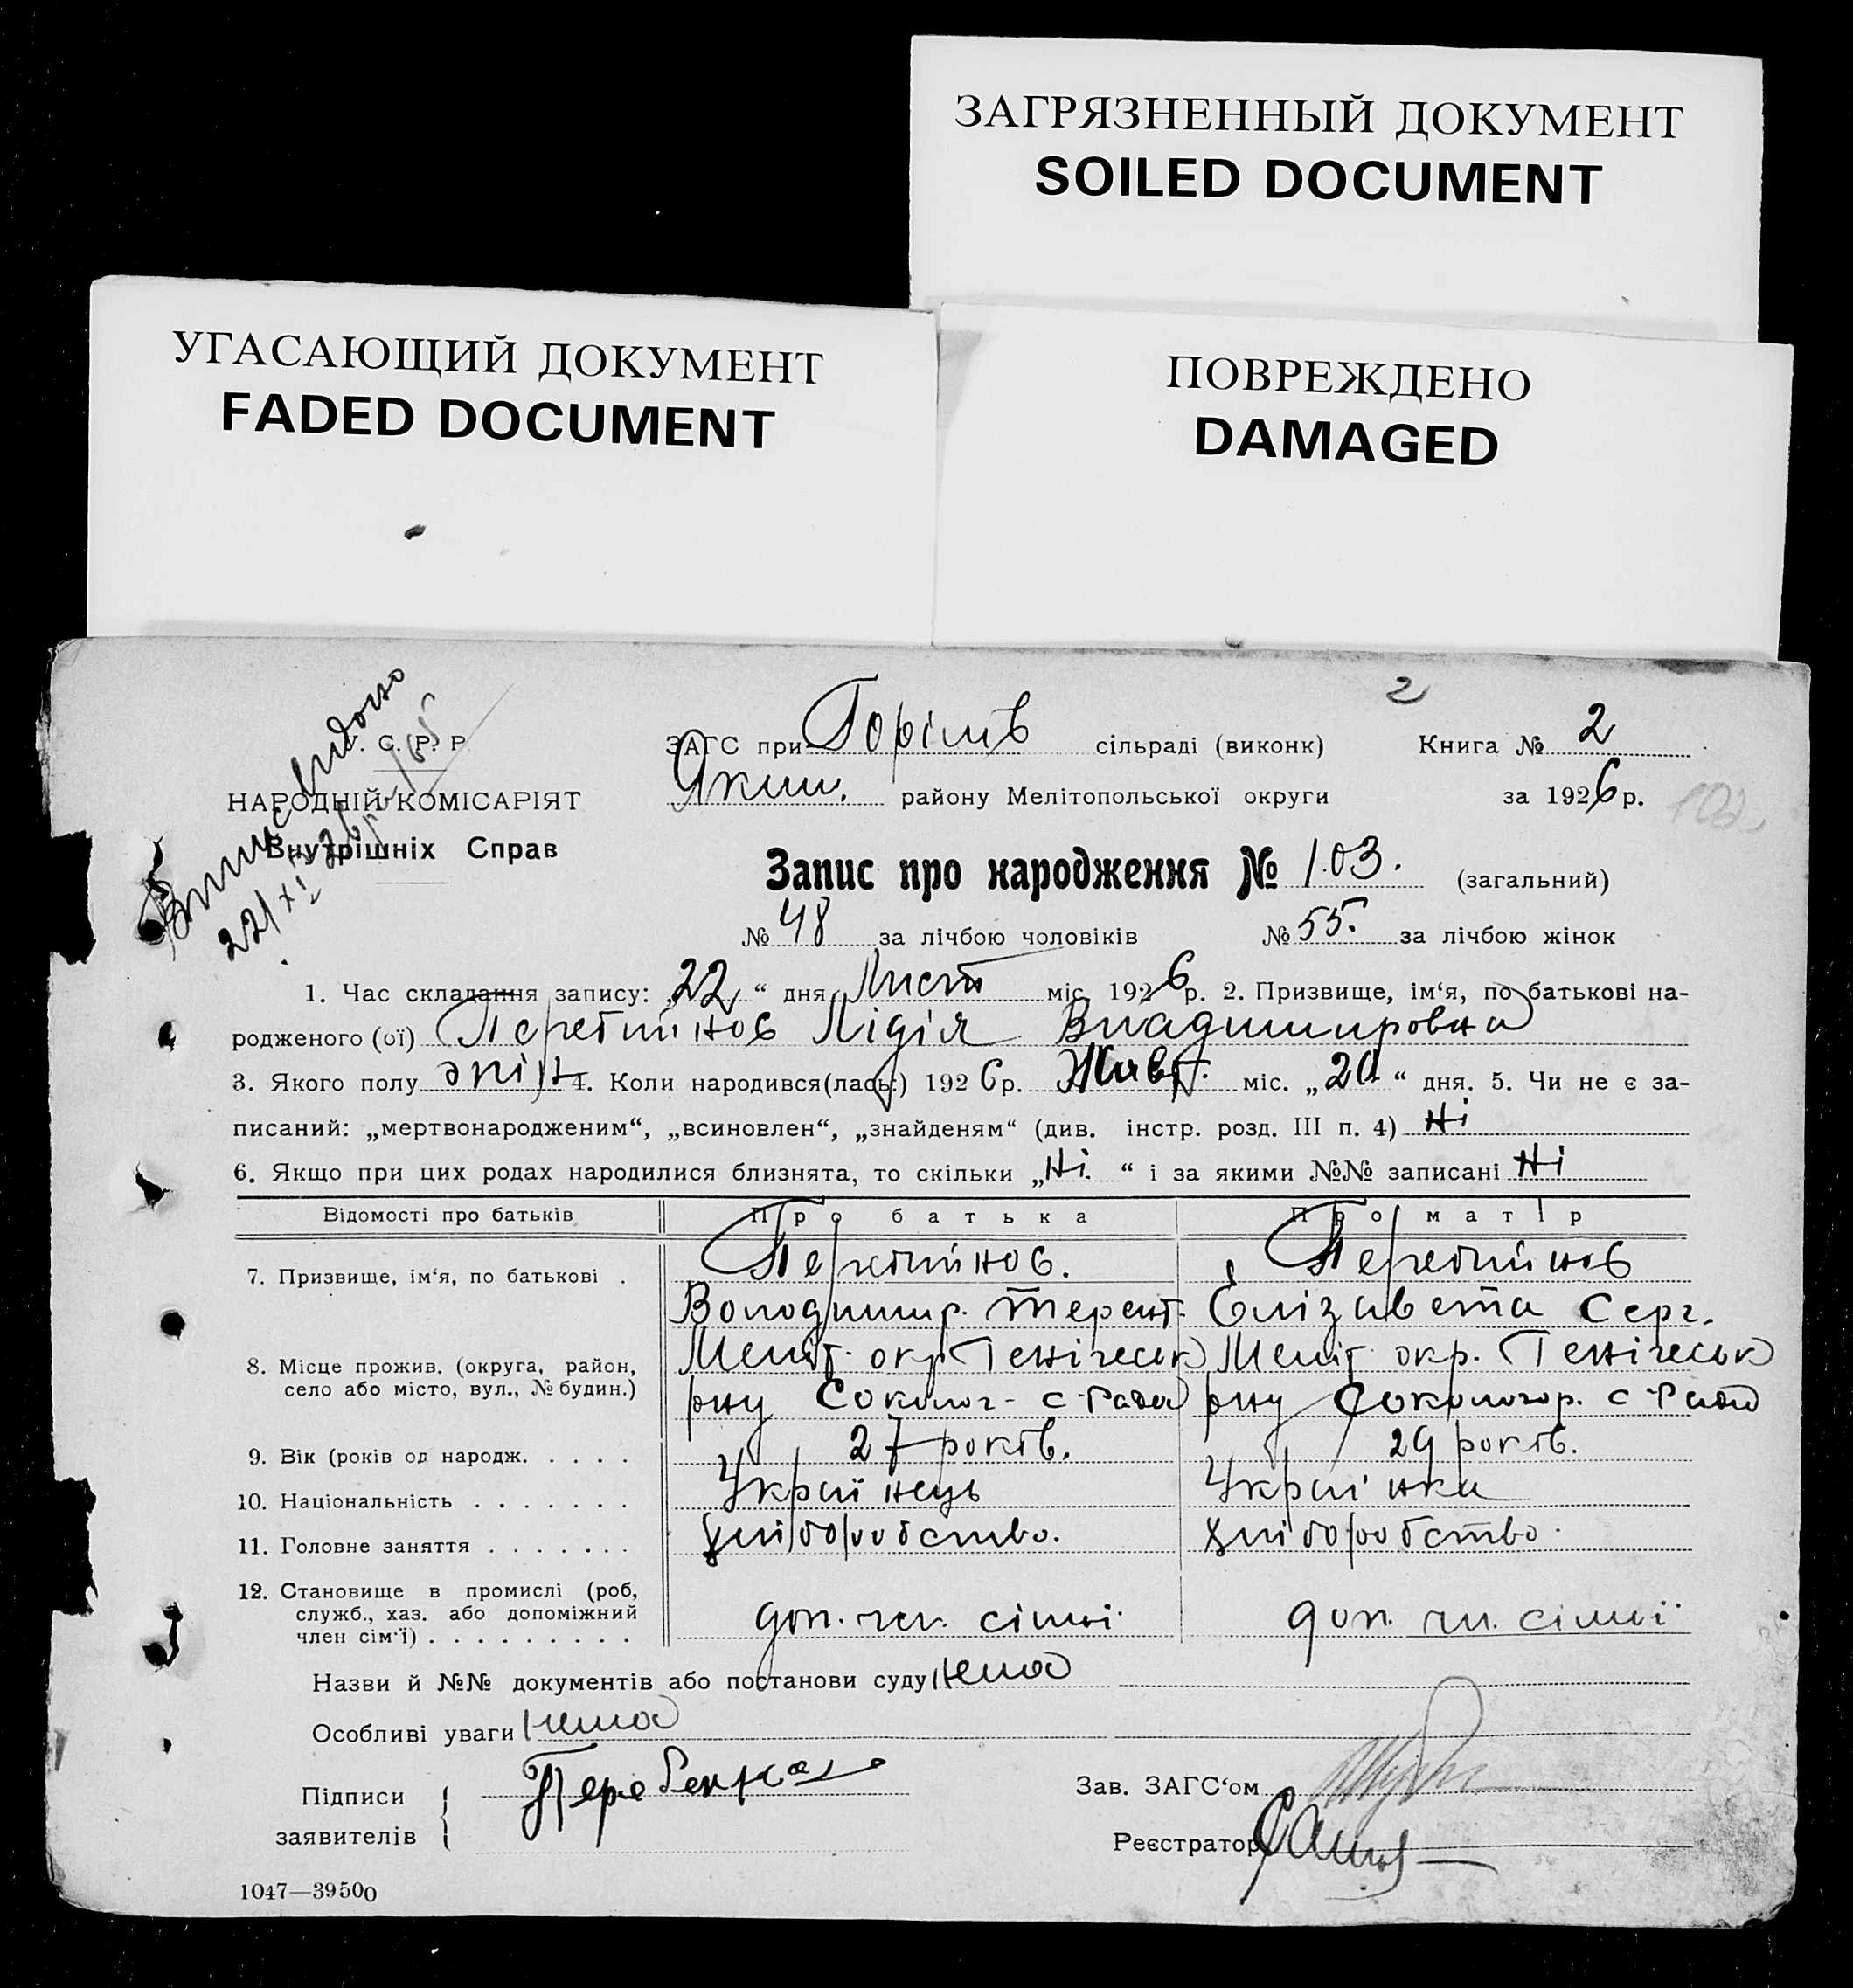 ЗАГРЯЗНЕННЫЙ ДОКУМЕНТ
SOILED DOCUMENT
УГАСАЮЩИЙ ДОКУМЕНТ
FADED DOCUMENT
ПОВРЕЖДЕНО
DAMAGED
2
У. С. Р. Р.
НАРОДНІЙ КОМІСАРІЯТ
Внутрішніх Справ
Виписс видано
ЗАГС при сільраді (виконк) Книга № 2
Яким. району Мелітопольської округи за 1926 р.
102
Запис про народження № 103. (загальний)
№ 48 за лічбою чоловіків № 55. за лічбою жінок
1. Час складання запису: „22“ дня Лист міс. 1926 р. 2. Призвище, ім‘я, по батькові на-
родженого (ої) Лідія Владимировна
3. Якого полу жін 4. Коли народився(лась:) 1926 р. Жовт. міс. „20“ дня. 5. Чи не є за-
писаний: „мертвонародженим“, „всиновлен“, „знайденям“ (див. інстр. розд. III п. 4) Ні
6. Якщо при цих родах народилися близнята, то скільки „Ні.“ і за якими №№ записані Ні
Відомості про батьків Про батька Про матір
7. Призвище, ім‘я, по батькові .
Володимир. Терент. Єлізавета Серг.
8. Місце прожив. (округа, район,
село або місто, вул., № будин.)
Меліт. окр. Генічеськ Меліт. окр. Генічеськ
рну Соколог- с-Рада рну Сокологор. с-Рада
9. Вік (років од народж. . . . . 27 років. 29 років.
10. Національність . . . . . . . Українець Українка
11. Головне заняття . . . . . . . хліборобство. хліборобство.
12. Становище в промислі (роб,
служб., хаз. або допоміжний
член сім‘ї) . . . . . . . . . доп. чл. сімьї доп. чл. сімьї
Назви й №№ документів або постанови суду нема
Особливі уваги нема
Підписи
заявителів
Зав. ЗАГС‘ом
Реєстратор
1047—39500